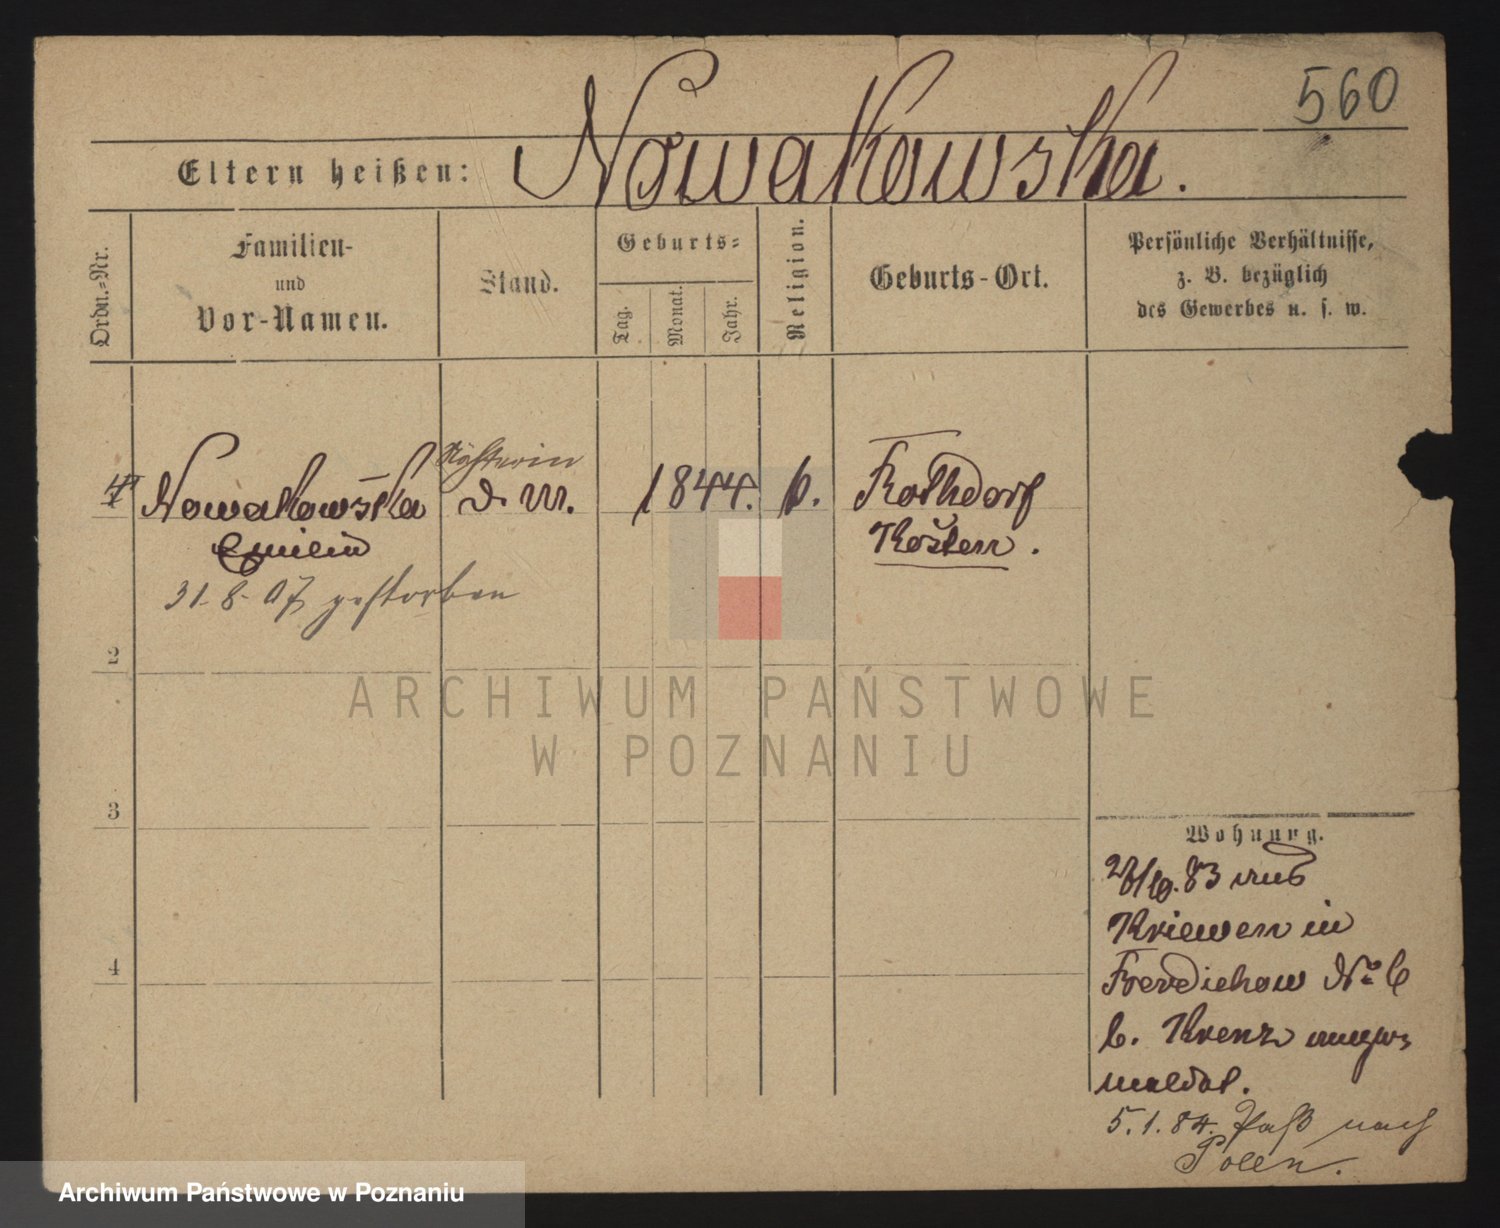 560
Eltern heißen: Nowakowska.
Ordn.-Nr.
Familien-
und
Vor-Namen.
Stand.
Geburts-
Tag.
Monat.
Jahr.
Religion.
Geburts-Ort.
Persönliche Verhältnisse,
z. B. bezüglich
des Gewerbes u. s. w.
Nowakowska
d. M. 1844. k. Rothdorf
Kosten.
31.8.07 gestorben
2
3
4
Wohnung.
83 aus
Kriewen in
No 6
b. Krenz ange-
meldet.
5.1.84. Paß nach
Polen.
ARCHIWUM PAŃSTWOWE
W POZNANIU
Archiwum Państwowe w Poznaniu